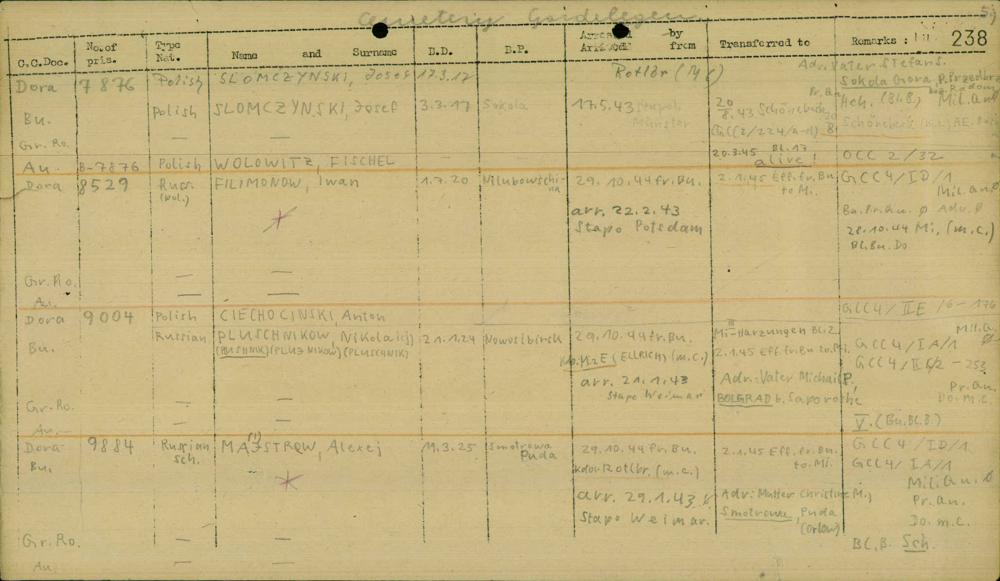 Cemetery Gardelegen
238
C.C.Doc. No. of pris. Type Nat. Name and Surname B.D. B.P. Arrested Arrived by from Transferred to Remarks :
Dora 7876 Polish SLOMCZYNSKI, Josef 12.3.17 Rotlbr (MC) Adr. Vater Stefans.
Sokola Gora, p. Przedbrz
Bu. Polish SLOMCZYNSKI, Josef 3.3.17 Sokola 17.5.43 Stapo Münster 20/8.43 Schönebeck Pr. an. Mil. An.
Gr. Ro. — — GCC(2/224/a-d)
20.3.45 Bl. 17 alive!
Au. B-7876 Polish WOLOWITZ, FISCHEL OCC 2/32
Dora 8529 Rus. (Pol.) FILIMONOW, Iwan 1.7.20 29.10.44 fr. Bu. 2.1.45 Eff. fr. Bu. to Mi. GCC4/ID/1
Mil. an. ø
arr. 22.2.43 Bu. Pr. an. ø Adr. ø
Stapo Potsdam 28.10.44 Mi, (m.c.)
Bl. Bu. Do
Gr. Ro. — —
Au. — —
Dora 9004 Polish CIECHOCINSKI Anton GCC4/IIE/6-176
Bu. Russian PLUSCHNIKOW, Nikolai 21.1.24 Nowosibirsk 29.10.44 fr. Bu. Mi-Harzungen Bl. 2 Mil. a.
(PLUSNIKOW) (PLUSCHNIK) (ELLRICH) (m.c.) 2.1.45 Eff. fr. Bu to Mi. GCC4/IA/1
arr. 21.1.43 Adr.: Vater Michail P, GCC4/
Stapo Weimar BOLGRAD b. Saporoshe Pr. an.
Do. m.c.
Gr. Ro. —
Au. — — V. (Bu. Bl. B.)
Dora 9884 Russian Sch. MAJSTROW, Alexej 11.3.25 Smotrowa Puda 29.10.44 fr. Bu. 2.1.45 Eff. fr. Bu. to. Mi. GCC4/ID/1
Bu. Kdo: Rotlbr. (m.c.) GCC4/IA/1
Mil. an. ø
arr. 29.1.43 Adr: Mutter Christine M.) Pr. an.
Stapo Weimar. Smotrowa, Puda (Orlow) Do. m.c.
Gr. Ro. — — Bl. B. Sch.
Au. — —